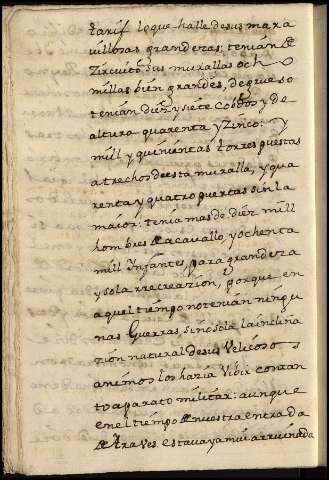 tarif lo que halle de sus mara
villosas grandezas: tenian de
Zircuito sus murallas ocho
millas bien grandes, de grueso
tenian diez y siete cobdos y de
altura quarenta y Zinco: y
mill y quinientas torres puestas
a trechos de esta muralla, y qua
renta y quatro puertas sin la
maior: tenia mas de diez mill
hombres de acavallo, y ochenta
mill Ynfantes, para grandeza
y sola rrecreazion, porque en
aquel tiempo no tenian ningu
nas Guerras, sino sola la inclina
zion natural de sus Velicosos
animos los hazia Vibir con tan
to aparato militar: aunque
en el tiempo de nuestra entrada
de Araves. estava ya mui arruinada